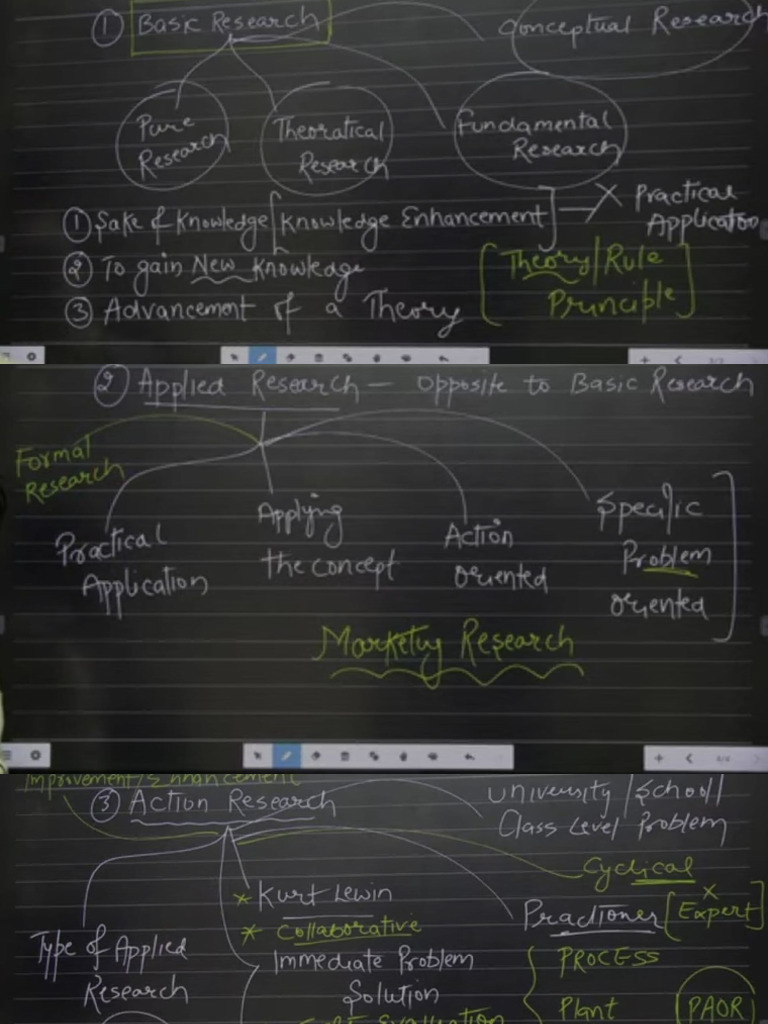 ① Basic Research
Conceptual Research
Pure
Research
Theoratical
Research
Fundamental
Research
① Sake of Knowledge [Knowledge Enhancement] — X Practical
Application
② To gain New Knowledge
③ Advancement of a Theory
[Theory/Rule
Principle]
② Applied Research — opposite to Basic Research
Formal
Research
Practical
Application
Applying
the concept
Action
oriented
Specific
Problem
oriented
Marketing Research
Improvement/Enhancement
③ Action Research
University/School/
Class Level Problem
Cyclical
* Kurt Lewin
* Collaborative
Practioner [Expert]
X
Type of Applied
Research
Immediate Problem
Solution
PROCESS
Plant
PAOR
Evaluation